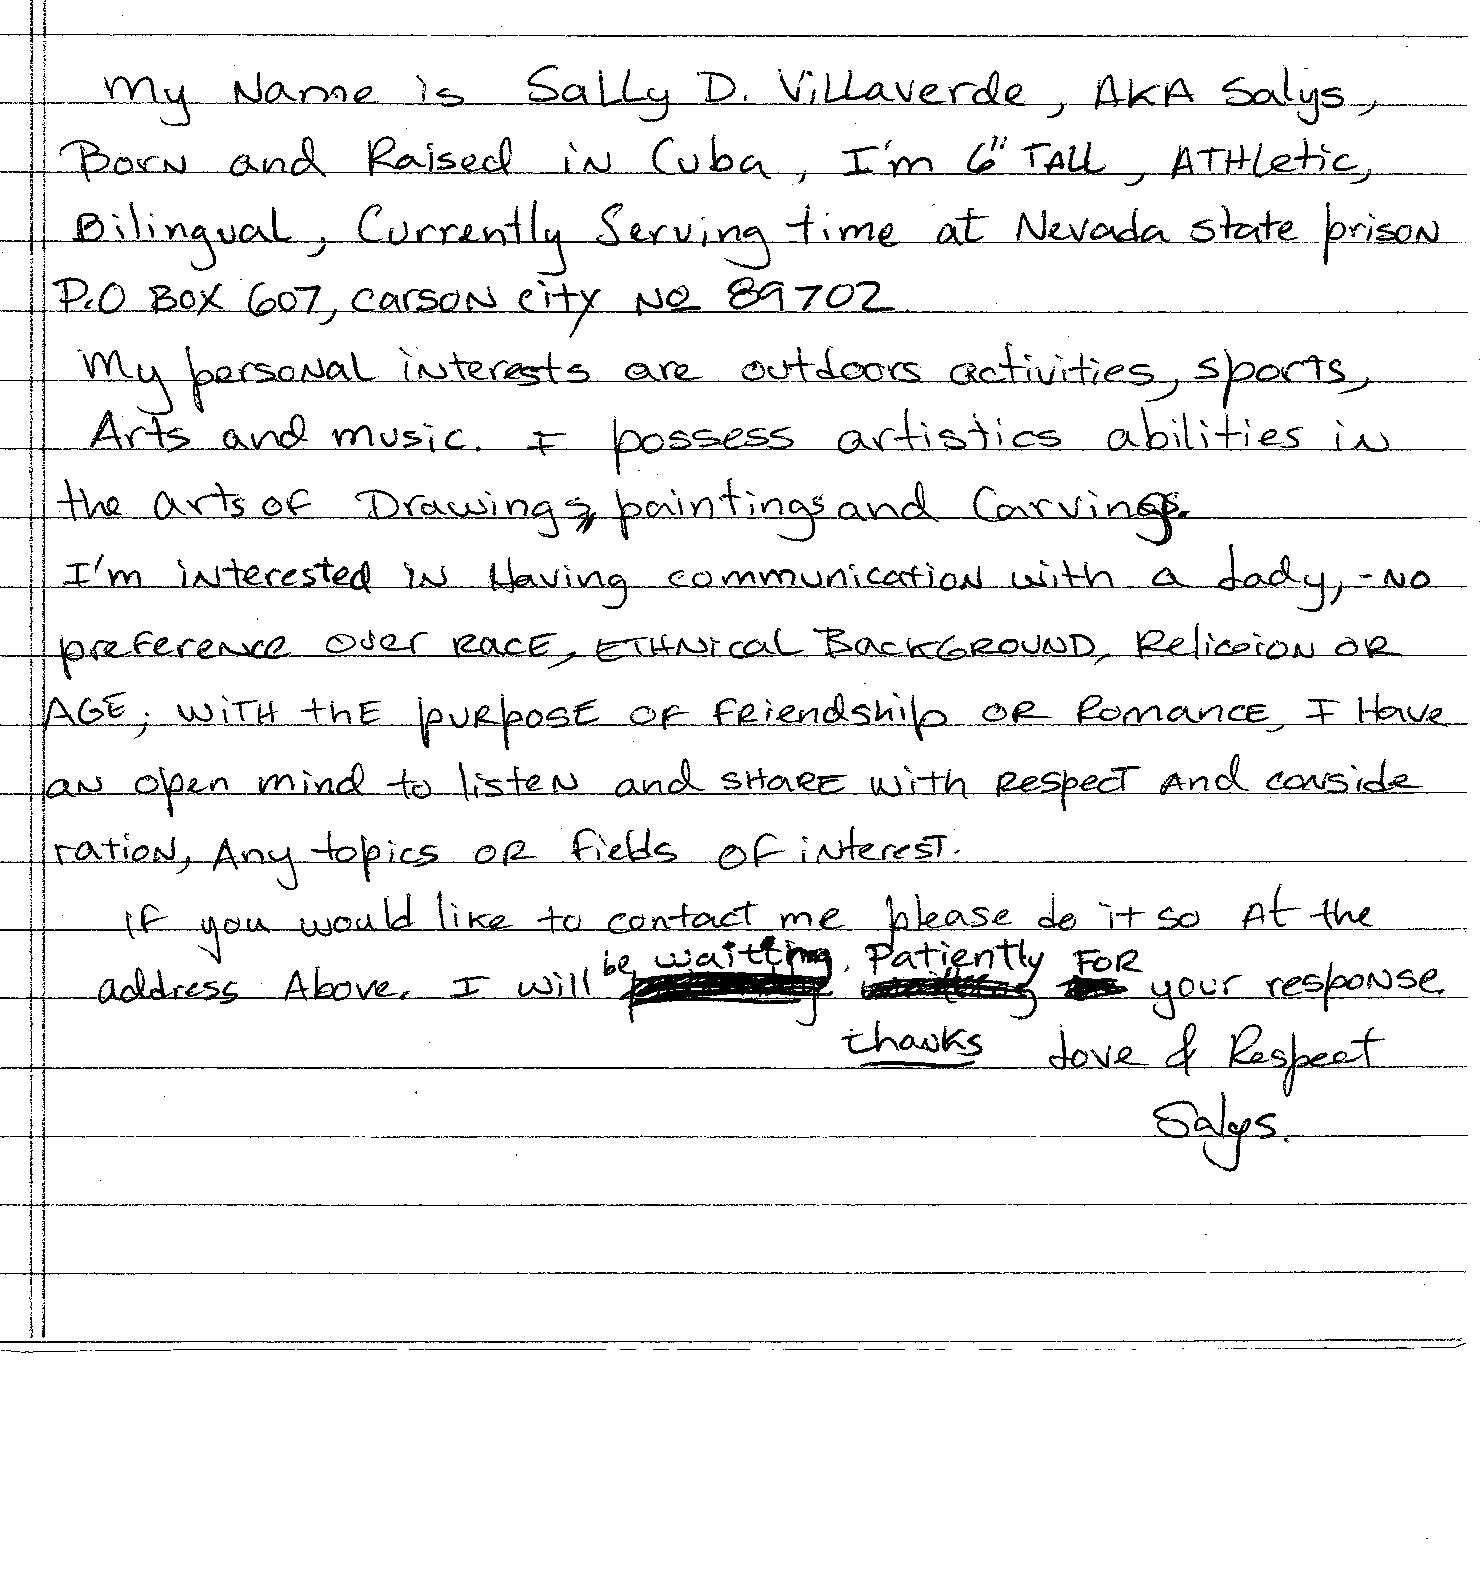 My Name is Sally D. Villaverde, AKA Salys,
Born and Raised in Cuba, I'm 6" TALL, ATHletic,
Bilingual, Currently Serving time at Nevada state prison
P.O BOX 607, Carson City Ne 89702
My personal interests are outdoors activities, sports,
Arts and music. I possess artistics abilities in
the arts of Drawings, paintings and Carvings.
I'm interested in Having communication with a Lady, - NO
preference over RACE, ETHNical BACKGROUND, Religion OR
AGE, WITH thE purpose OF Friendship OR Romance, I Have
an open mind to listen and SHARE with Respect And conside
ration, Any topics OR fields of interest.
IF you would like to contact me please do it so At the
address Above. I will be waitting. Patiently FOR your response.
thanks Love & Respect
Salys.